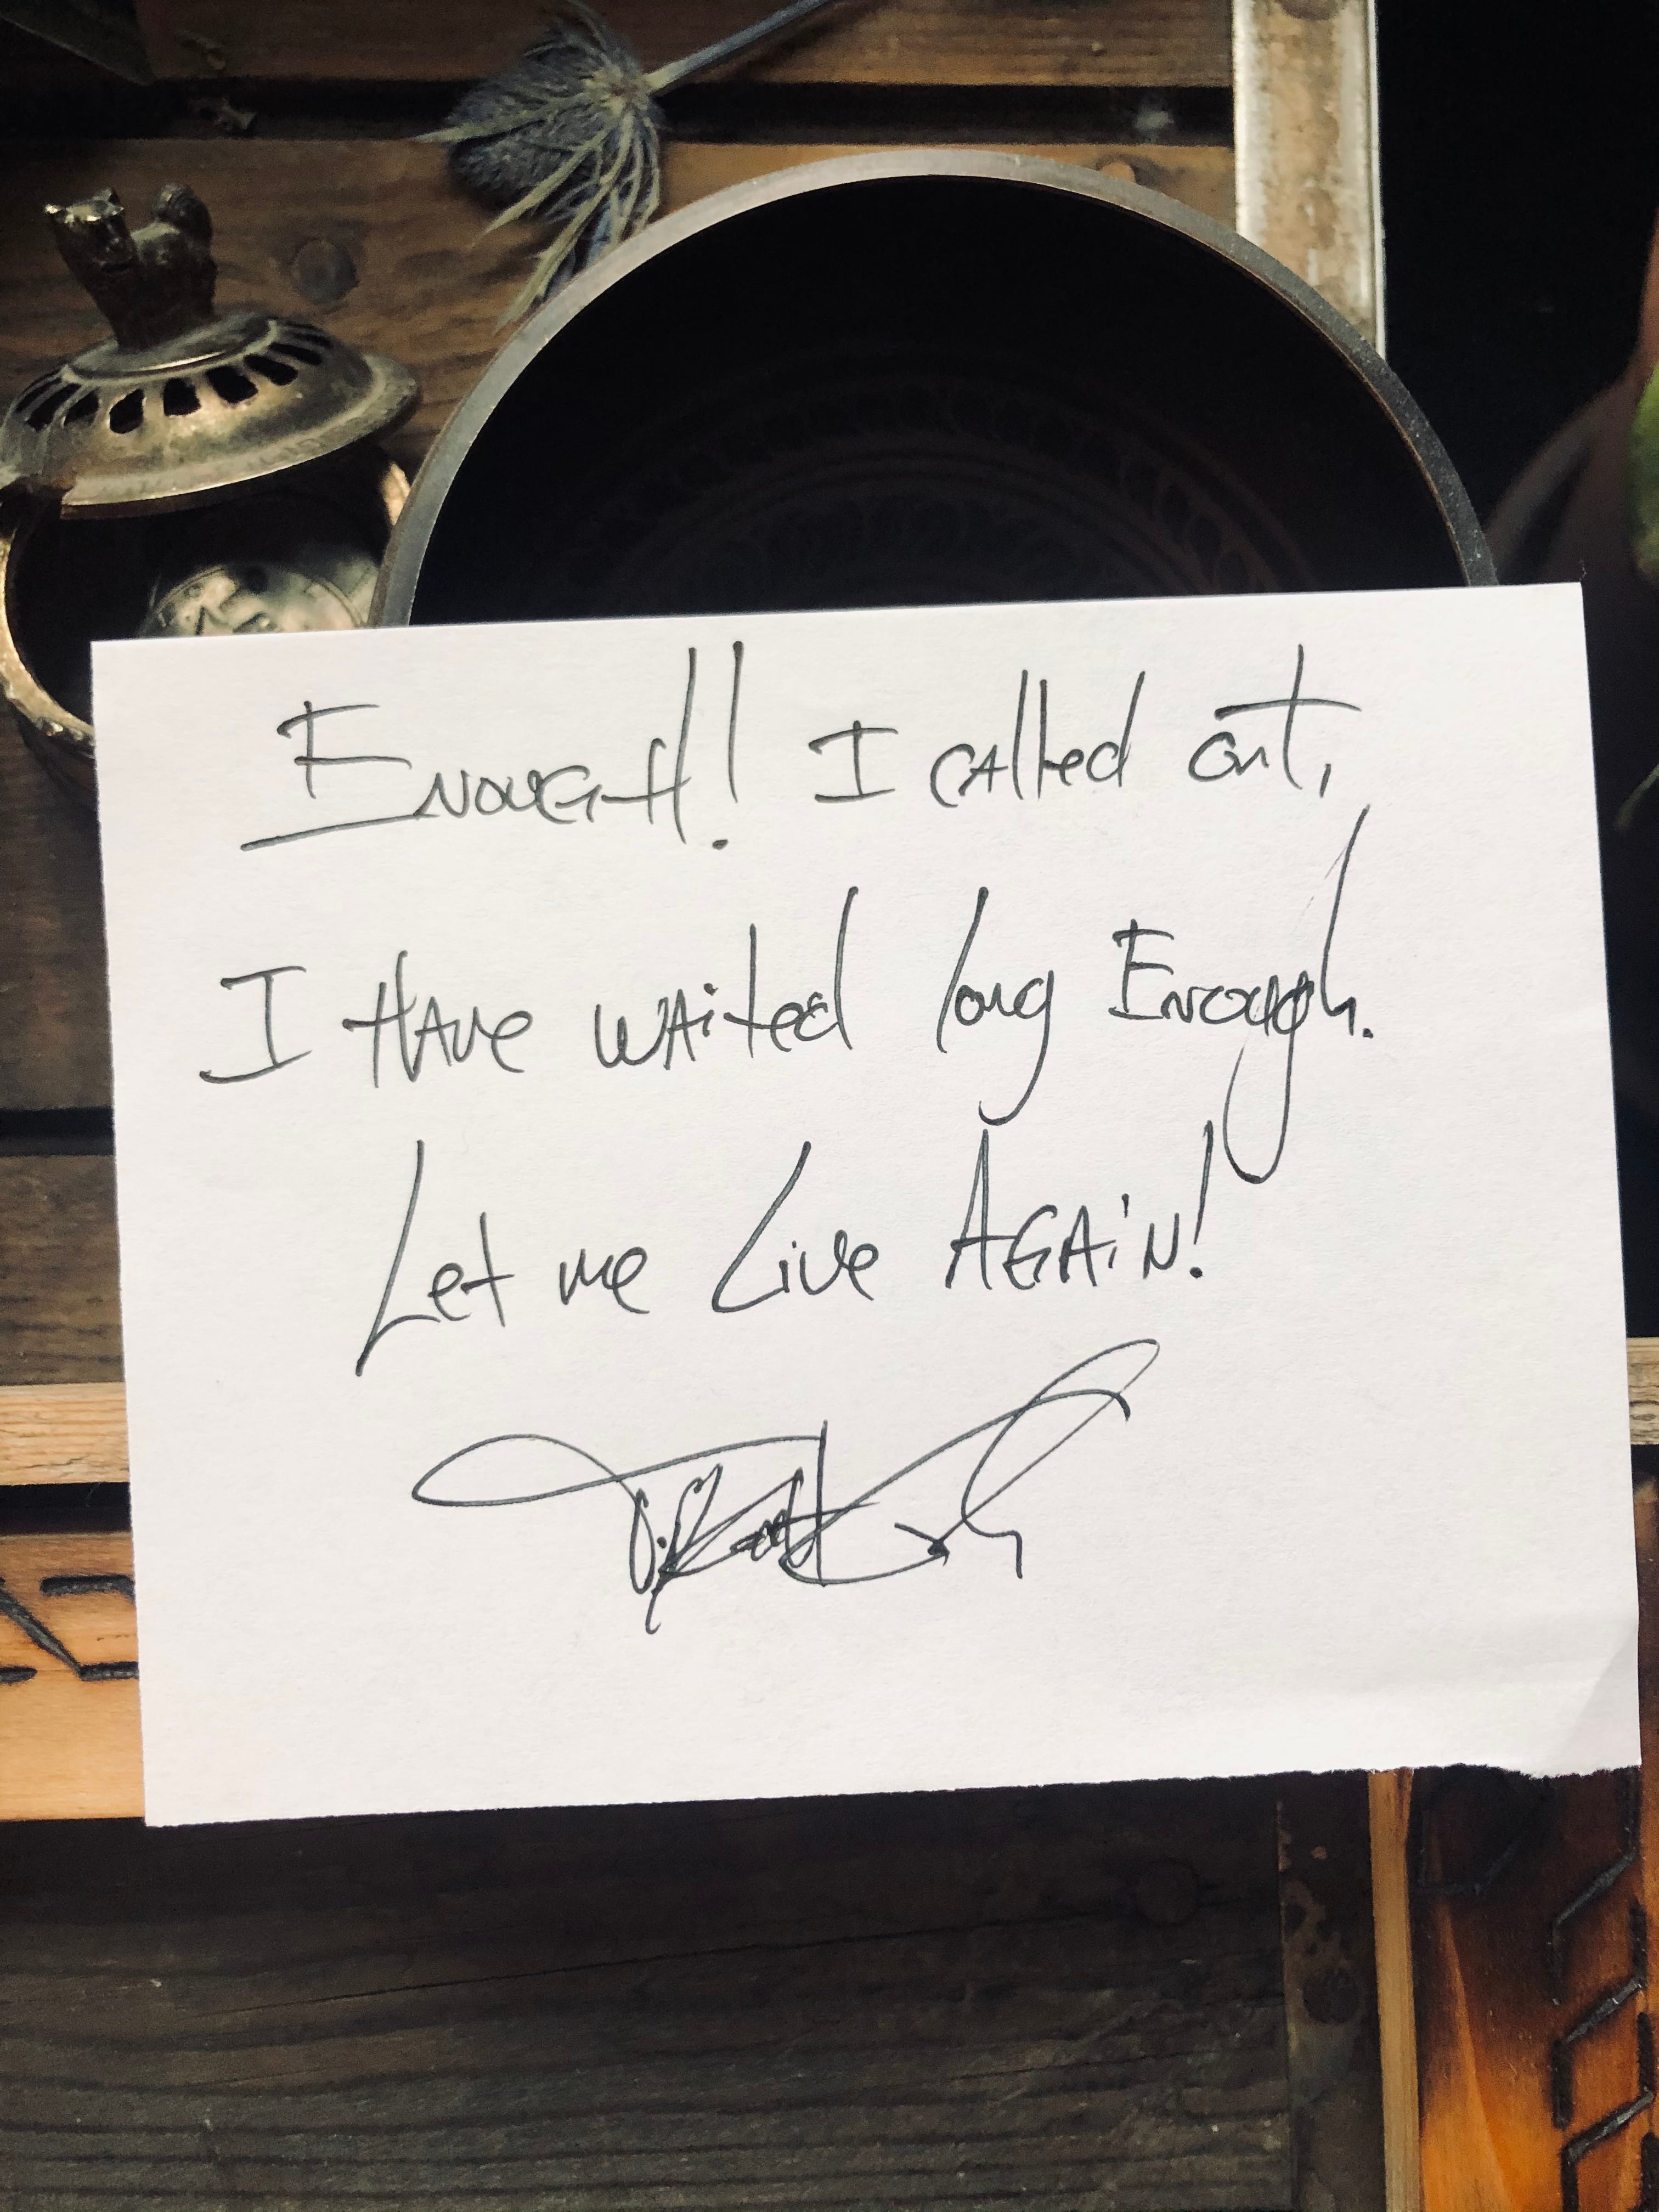 Enough! I called out,
I Have waited long Enough.
Let me Live Again!